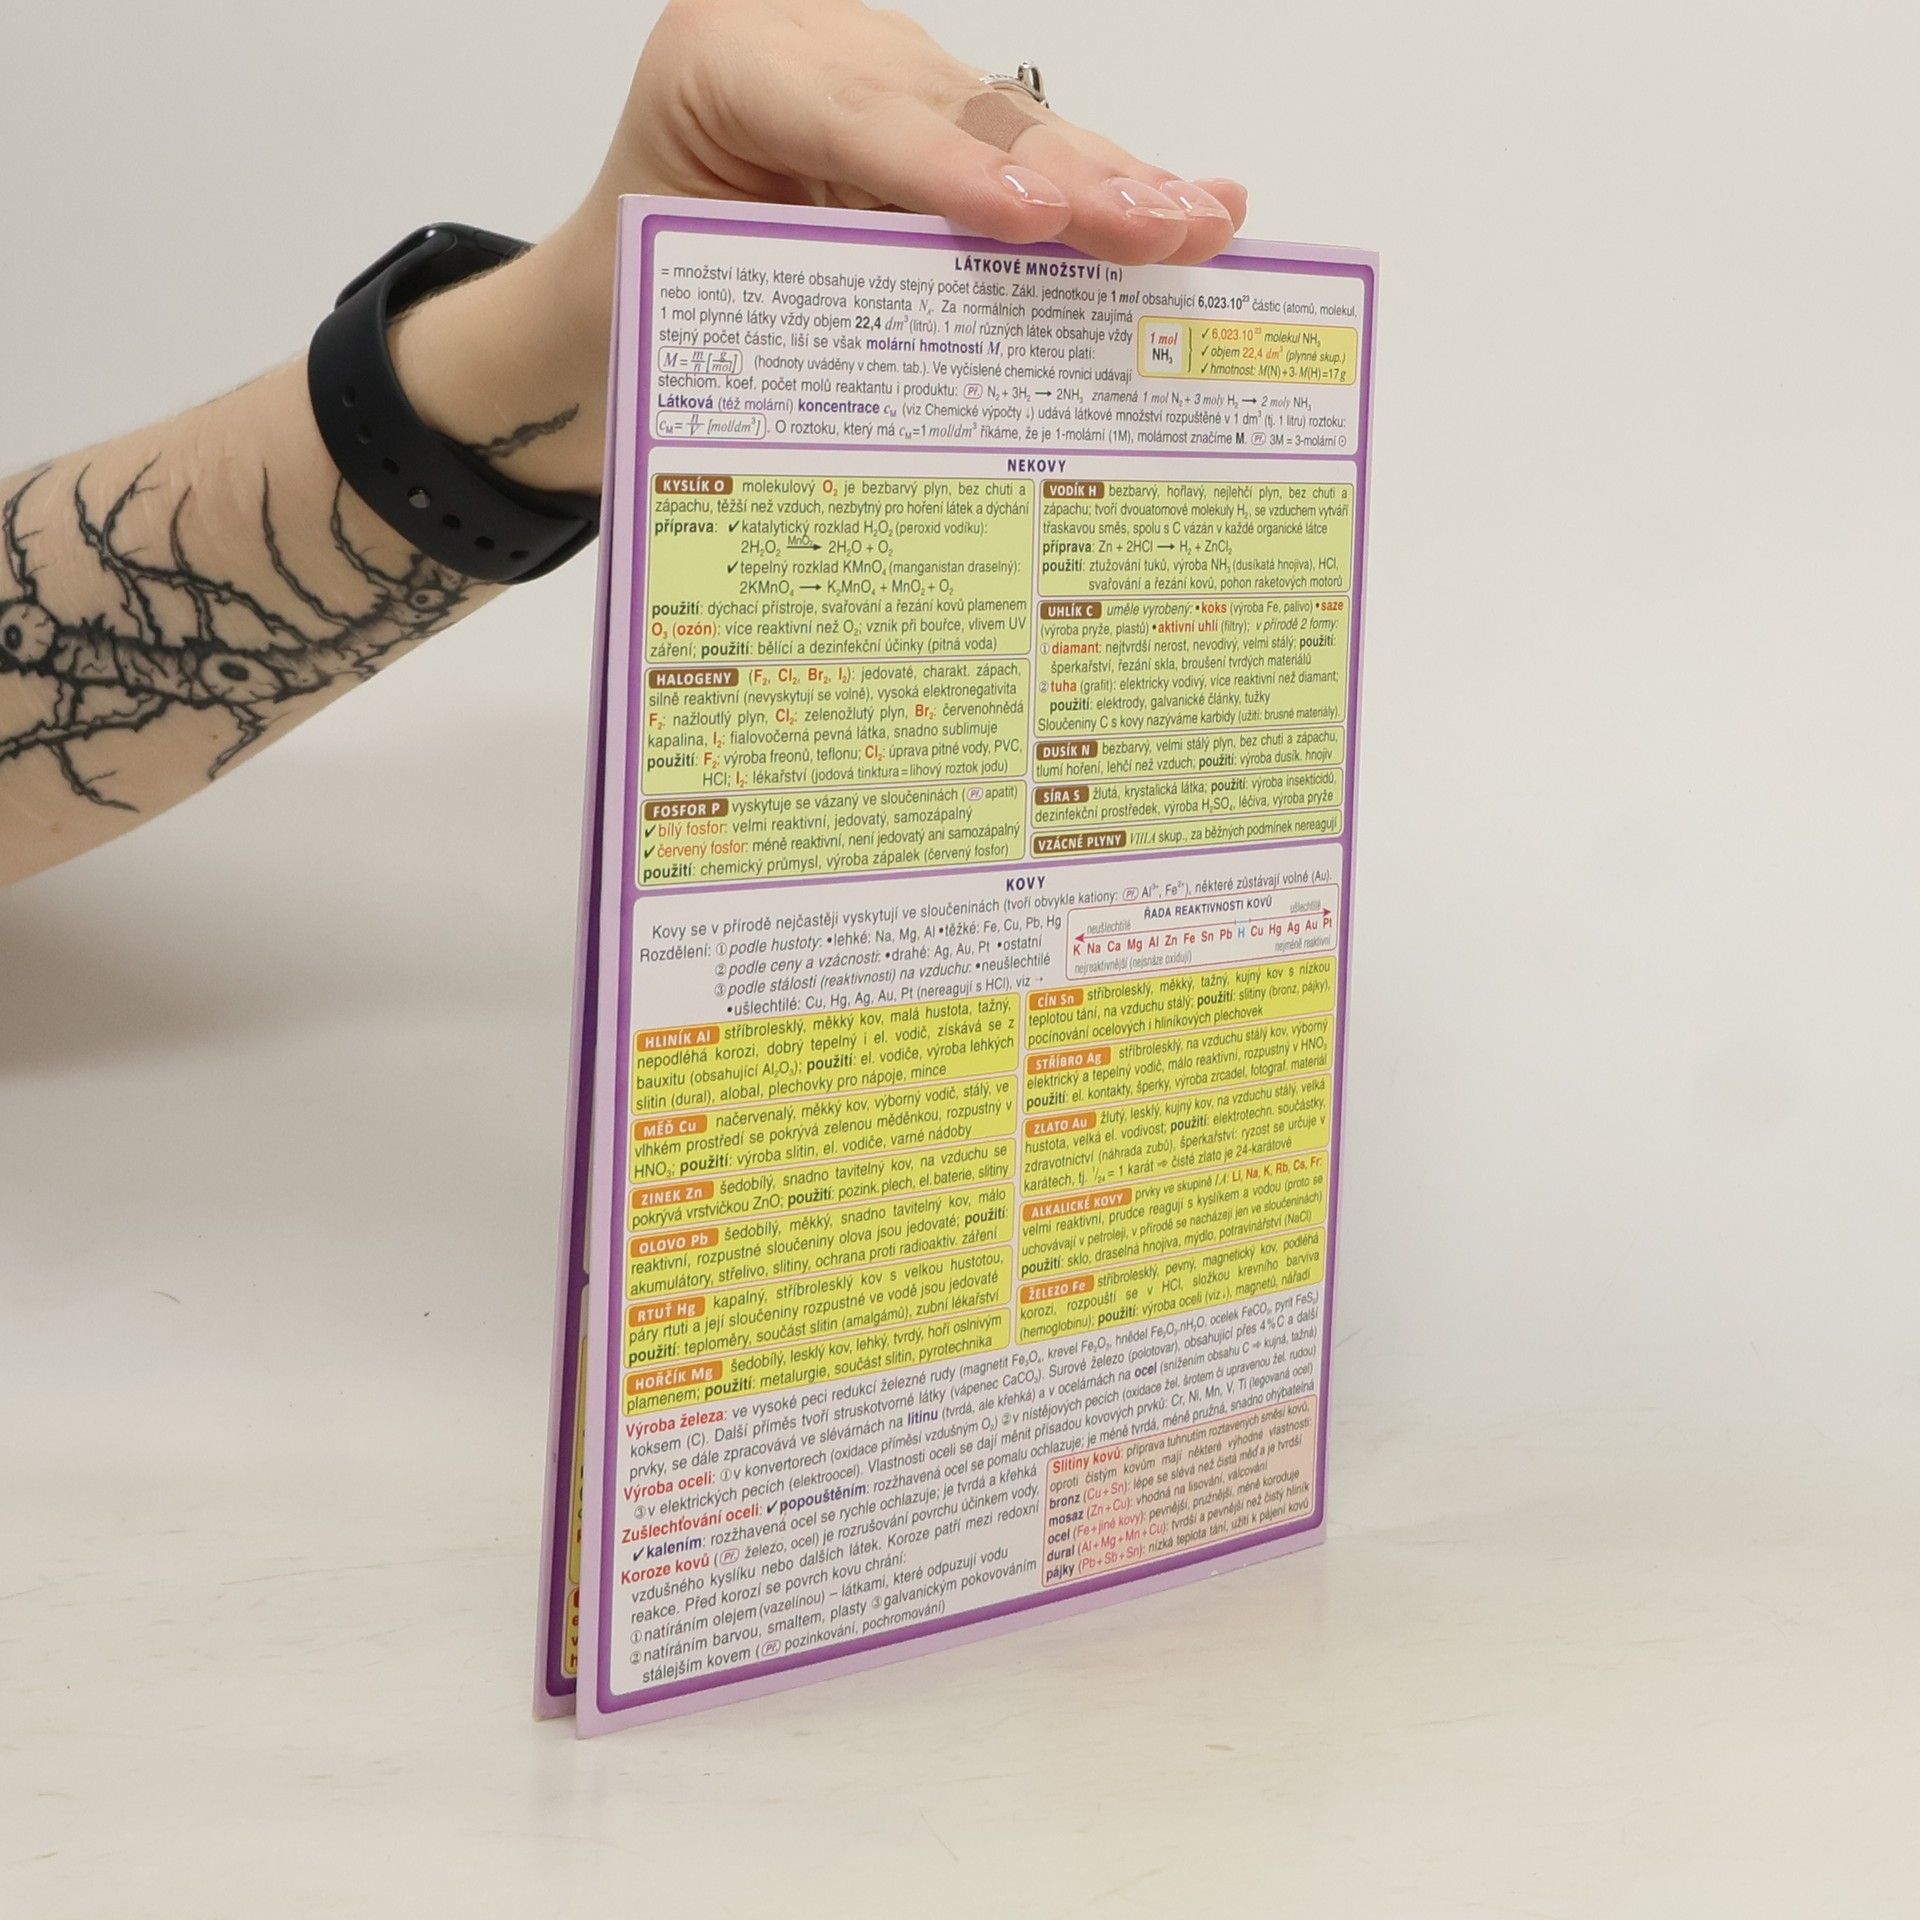 LÁTKOVÉ MNOŽSTVÍ (n)
= množství látky, které obsahuje vždy stejný počet částic. Zákl. jednotkou je 1 mol obsahující 6,023.10²³ částic (atomů, molekul,
nebo iontů), tzv. Avogadrova konstanta N_A. Za normálních podmínek zaujímá
1 mol plynné látky vždy objem 22,4 dm³ (litrů). 1 mol různých látek obsahuje vždy
stejný počet částic, liší se však molární hmotností M, pro kterou platí:
M = m/n [g/mol] (hodnoty uváděny v chem. tab.). Ve vyčíslené chemické rovnici udávají
1 mol NH₃
✓ 6,023.10²³ molekul NH₃
✓ objem 22,4 dm³ (plynné skup.)
✓ hmotnost: M(N)+3.M(H)=17g
stechiom. koef. počet molů reaktantu i produktu: Př. N₂ + 3H₂ → 2NH₃ znamená 1 mol N₂ + 3 moly H₂ → 2 moly NH₃
Látková (též molární) koncentrace c_M (viz Chemické výpočty ↓) udává látkové množství rozpuštěné v 1 dm³ (tj. 1 litru) roztoku:
c_M = n/V [mol/dm³]. O roztoku, který má c_M=1 mol/dm³ říkáme, že je 1-molární (1M), molárnost značíme M. Př. 3M = 3-molární ⊙
NEKOVY
KYSLÍK O molekulový O₂ je bezbarvý plyn, bez chuti a
zápachu, těžší než vzduch, nezbytný pro hoření látek a dýchání
příprava: ✓ katalytický rozklad H₂O₂ (peroxid vodíku):
2H₂O₂ MnO₂→ 2H₂O + O₂
✓ tepelný rozklad KMnO₄ (manganistan draselný):
2KMnO₄ → K₂MnO₄ + MnO₂ + O₂
použití: dýchací přístroje, svařování a řezání kovů plamenem
O₃ (ozón): více reaktivní než O₂; vznik při bouřce, vlivem UV
záření; použití: bělící a dezinfekční účinky (pitná voda)
HALOGENY (F₂, Cl₂, Br₂, I₂): jedovaté, charakt. zápach,
silně reaktivní (nevyskytují se volně), vysoká elektronegativita
F₂: nažloutlý plyn, Cl₂: zelenožlutý plyn, Br₂: červenohnědá
kapalina, I₂: fialovočerná pevná látka, snadno sublimuje
použití: F₂: výroba freonů, teflonu; Cl₂: úprava pitné vody, PVC,
HCl; I₂: lékařství (jodová tinktura = lihový roztok jodu)
FOSFOR P vyskytuje se vázaný ve sloučeninách (Př. apatit)
✓ bílý fosfor: velmi reaktivní, jedovatý, samozápalný
✓ červený fosfor: méně reaktivní, není jedovatý ani samozápalný
použití: chemický průmysl, výroba zápalek (červený fosfor)
VODÍK H bezbarvý, hořlavý, nejlehčí plyn, bez chuti a
zápachu; tvoří dvouatomové molekuly H₂, se vzduchem vytváří
třaskavou směs, spolu s C vázán v každé organické látce
příprava: Zn + 2HCl → H₂ + ZnCl₂
použití: ztužování tuků, výroba NH₃ (dusíkatá hnojiva), HCl,
svařování a řezání kovů, pohon raketových motorů
UHLÍK C uměle vyrobený: • koks (výroba Fe, palivo) • saze
(výroba pryže, plastů) • aktivní uhlí (filtry); v přírodě 2 formy:
① diamant: nejtvrdší nerost, nevodivý, velmi stálý; použití:
šperkařství, řezání skla, broušení tvrdých materiálů
② tuha (grafit): elektricky vodivý, více reaktivní než diamant;
použití: elektrody, galvanické články, tužky
Sloučeniny C s kovy nazýváme karbidy (užití: brusné materiály).
DUSÍK N bezbarvý, velmi stálý plyn, bez chuti a zápachu,
tlumí hoření, lehčí než vzduch; použití: výroba dusík. hnojiv
SÍRA S žlutá, krystalická látka; použití: výroba insekticidů,
dezinfekční prostředek, výroba H₂SO₄, léčiva, výroba pryže
VZÁCNÉ PLYNY VIII.A skup., za běžných podmínek nereagují
KOVY
Kovy se v přírodě nejčastěji vyskytují ve sloučeninách (tvoří obvykle kationy: Př. Al³⁺, Fe²⁺), některé zůstávají volné (Au).
Rozdělení: ① podle hustoty: • lehké: Na, Mg, Al • těžké: Fe, Cu, Pb, Hg
② podle ceny a vzácnosti: • drahé: Ag, Au, Pt • ostatní
③ podle stálosti (reaktivnosti) na vzduchu: • neušlechtilé
• ušlechtilé: Cu, Hg, Ag, Au, Pt (nereagují s HCl), viz →
ŘADA REAKTIVNOSTI KOVŮ
neušlechtilé ušlechtilé
K Na Ca Mg Al Zn Fe Sn Pb H Cu Hg Ag Au Pt
nejreaktivnější (nejsnáze oxidují) nejméně reaktivní
HLINÍK Al stříbrolesklý, měkký kov, malá hustota, tažný,
nepodléhá korozi, dobrý tepelný i el. vodič, získává se z
bauxitu (obsahující Al₂O₃); použití: el. vodiče, výroba lehkých
slitin (dural), alobal, plechovky pro nápoje, mince
MĚĎ Cu načervenalý, měkký kov, výborný vodič, stálý, ve
vlhkém prostředí se pokrývá zelenou měděnkou, rozpustný v
HNO₃; použití: výroba slitin, el. vodiče, varné nádoby
ZINEK Zn šedobílý, snadno tavitelný kov, na vzduchu se
pokrývá vrstvičkou ZnO; použití: pozink. plech, el. baterie, slitiny
OLOVO Pb šedobílý, měkký, snadno tavitelný kov, málo
reaktivní, rozpustné sloučeniny olova jsou jedovaté; použití:
akumulátory, střelivo, slitiny, ochrana proti radioaktiv. záření
RTUŤ Hg kapalný, stříbrolesklý kov s velkou hustotou,
páry rtuti a její sloučeniny rozpustné ve vodě jsou jedovaté
použití: teploměry, součást slitin (amalgámů), zubní lékařství
HOŘČÍK Mg šedobílý, lesklý kov, lehký, tvrdý, hoří oslnivým
plamenem; použití: metalurgie, součást slitin, pyrotechnika
CÍN Sn stříbrolesklý, měkký, tažný, kujný kov s nízkou
teplotou tání, na vzduchu stálý; použití: slitiny (bronz, pájky),
pocínování ocelových i hliníkových plechovek
STŘÍBRO Ag stříbrolesklý, na vzduchu stálý kov, výborný
elektrický a tepelný vodič, málo reaktivní, rozpustný v HNO₃
použití: el. kontakty, šperky, výroba zrcadel, fotograf. materiál
ZLATO Au žlutý, lesklý, kujný kov, na vzduchu stálý, velká
hustota, velká el. vodivost; použití: elektrotechn. součástky,
zdravotnictví (náhrada zubů), šperkařství: ryzost se určuje v
karátech, tj. ¹/₂₄ = 1 karát ⇒ čisté zlato je 24-karátové
ALKALICKÉ KOVY prvky ve skupině I.A: Li, Na, K, Rb, Cs, Fr:
velmi reaktivní, prudce reagují s kyslíkem a vodou (proto se
uchovávají v petroleji, v přírodě se nacházejí jen ve sloučeninách)
použití: sklo, draselná hnojiva, mýdlo, potravinářství (NaCl)
ŽELEZO Fe stříbrolesklý, pevný, magnetický kov, podléhá
korozi, rozpouští se v HCl, složkou krevního barviva
(hemoglobinu); použití: výroba oceli (viz ↓), magnetů, nářadí
Výroba železa: ve vysoké peci redukcí železné rudy (magnetit Fe₃O₄, krevel Fe₂O₃, hnědel Fe₂O₃.nH₂O, ocelek FeCO₃, pyrit FeS₂)
koksem (C). Další příměs tvoří struskotvorné látky (vápenec CaCO₃). Surové železo (polotovar), obsahující přes 4% C a další
prvky, se dále zpracovává ve slévárnách na litinu (tvrdá, ale křehká) a v ocelárnách na ocel (snížením obsahu C ⇒ kujná, tažná)
Výroba oceli: ① v konvertorech (oxidace příměsí vzdušným O₂) ② v nístějových pecích (oxidace žel. šrotem či upravenou žel. rudou)
③ v elektrických pecích (elektroocel). Vlastnosti oceli se dají měnit přísadou kovových prvků: Cr, Ni, Mn, V, Ti (legovaná ocel)
Zušlechťování oceli: ✓ popouštěním: rozžhavená ocel se pomalu ochlazuje; je méně tvrdá, méně pružná, snadno ohýbatelná
✓ kalením: rozžhavená ocel se rychle ochlazuje; je tvrdá a křehká
Koroze kovů (Př. železo, ocel) je rozrušování povrchu účinkem vody,
vzdušného kyslíku nebo dalších látek. Koroze patří mezi redoxní
reakce. Před korozí se povrch kovu chrání:
① natíráním olejem (vazelínou) – látkami, které odpuzují vodu
② natíráním barvou, smaltem, plasty ③ galvanickým pokovováním
stálejším kovem (Př. pozinkování, pochromování)
Slitiny kovů: příprava tuhnutím roztavených směsí kovů,
oproti čistým kovům mají některé výhodné vlastnosti:
bronz (Cu+Sn): lépe se slévá než čistá měď a je tvrdší
mosaz (Zn+Cu): vhodná na lisování, válcování
ocel (Fe+jiné kovy): pevnější, pružnější, méně koroduje
dural (Al+Mg+Mn+Cu): tvrdší a pevnější než čistý hliník
pájky (Pb+Sb+Sn): nízká teplota tání, užití k pájení kovů